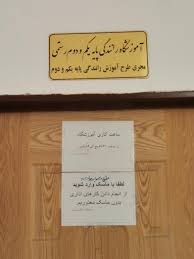 آموزشگاه رانندگی پایه یکم و دوم رستمی
مجری طرح آموزش رانندگی پایه یکم و دوم
ساعت کاری آموزشگاه
لطفا با ماسک وارد شوید
از انجام دادن کارهای اداری
بدون ماسک معذوریم